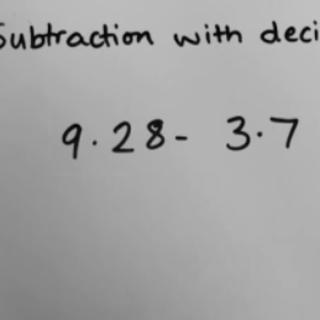 Subtraction with deci
9.28- 3.7